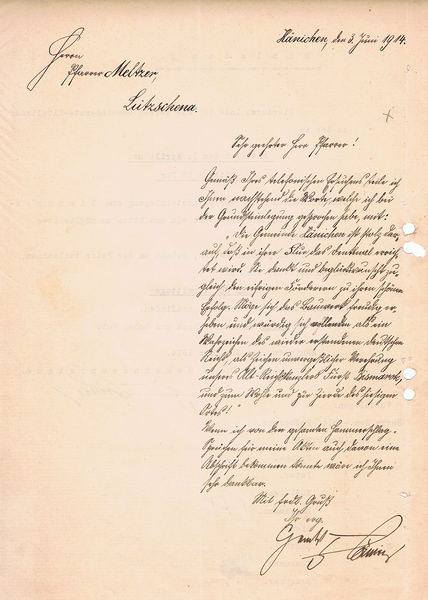 Hänichen, den 3. Juni 1914.
Herrn
Pfarrer Meltzer,
Leitzschena.
Sehr geehrter Herr Pfarrer!
Gemäß Ihres telefonischen Ersuchens teile ich
Ihnen nachstehend die Worte, welche ich bei
der Grundsteinlegung gesprochen habe, mit:
„Die Gemeinde Hänichen ist stolz dar-
auf, daß in ihrer Flur das Denkmal errich-
tet wird. Sie dankt und beglückwünscht zu-
gleich den eifrigen Förderern zu ihrem schönen
Erfolg. Möge sich das Bauwerk freudig er-
heben und würdig sich vollenden als ein
Wahrzeichen des wieder erstandenen Deutschen
Reichs, als Zeichen unvergeßlicher Verehrung
unseres Alt-Reichskanzlers Fürst Bismarck,
und zum Wohle und zur Zierde des hiesigen
Ortes!"
Wenn ich von den gesamten Hammerschlag-
Sprüchen für meine Akten auch davon eine
Abschrift bekommen könnte wäre ich Ihnen
sehr dankbar.
Mit frdl. Gruß
Ihr erg.